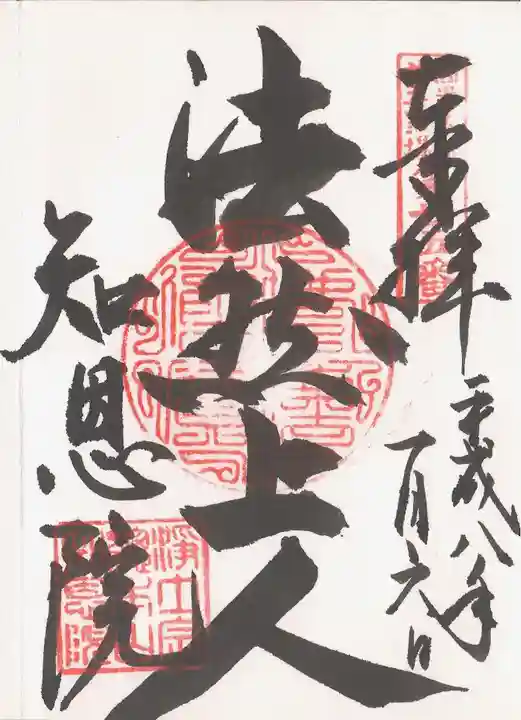 奉拝
平成八年
一月六日
法然上人
知恩院